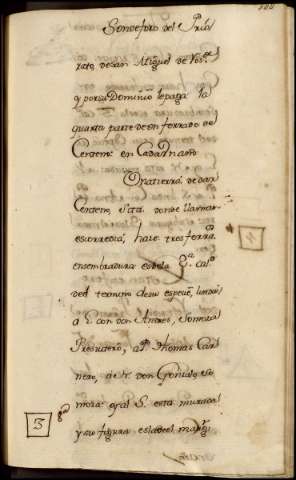 Son de foro del Prio
rato, de san Miguel de
y por su Dominio le paga la
quarta parte de un ferrado de
Centeno en Cada un año
Otra tierra de dar
Centeno, Sita donde llaman
escorredia, haze tres ferra.
ensembradura es de la 2ª cal.ᵈ
del termino de su especie, limita
a L. con don Andres,
Presvitero, a P. Thomas Car
nero, a N. don Gonzalo So
moza y al S. esta murada
y su figura es la del margⁿ
3